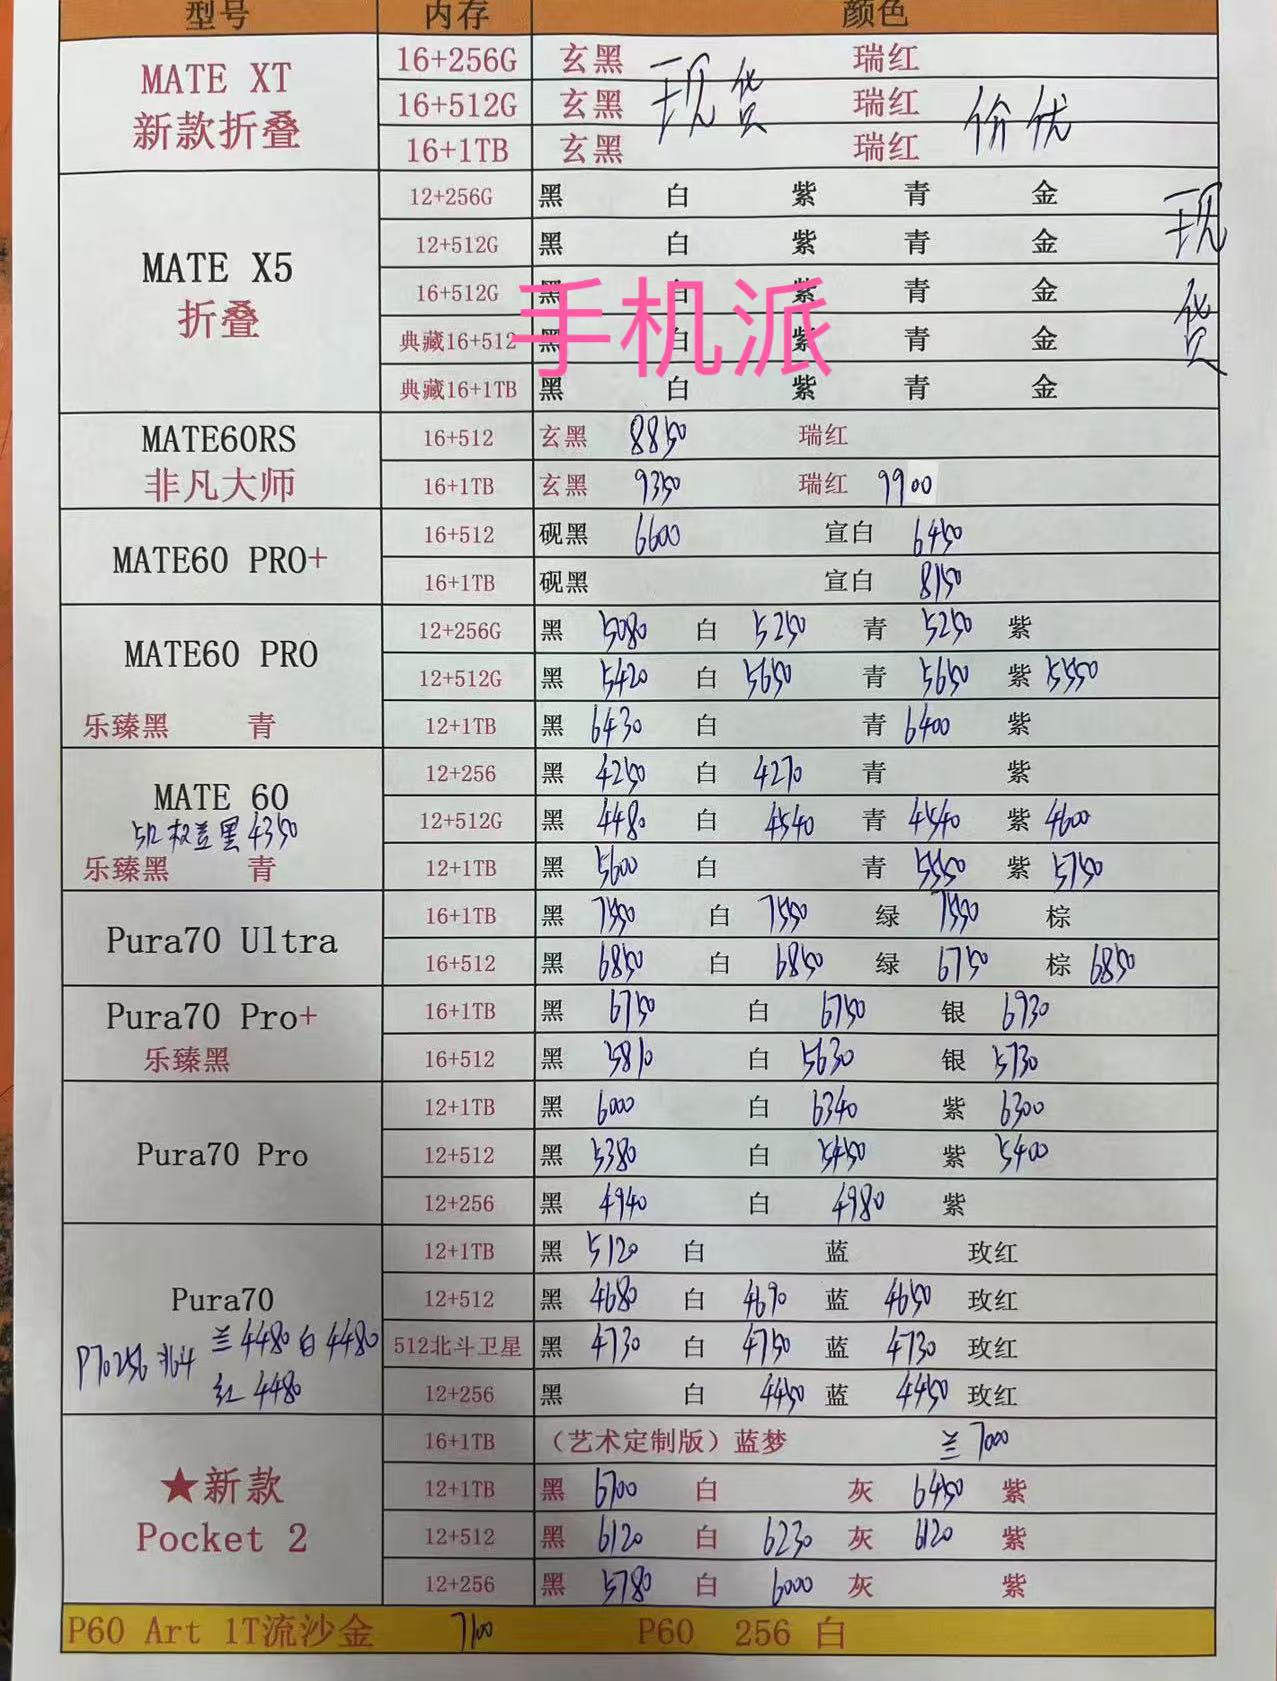 型号 内存 颜色
MATE XT
新款折叠
16+256G 玄黑 瑞红
16+512G 玄黑 现货 瑞红 价优
16+1TB 玄黑 瑞红
MATE X5
折叠
12+256G 黑 白 紫 青 金
现货
12+512G 黑 白 紫 青 金
16+512G 黑 白 紫 青 金
手机派
典藏16+512 黑 白 紫 青 金
典藏16+1TB 黑 白 紫 青 金
MATE60RS
非凡大师
16+512 玄黑 8850 瑞红
16+1TB 玄黑 9350 瑞红 9900
MATE60 PRO+
16+512 砚黑 6600 宣白 6450
16+1TB 砚黑 宣白 8150
MATE60 PRO
乐臻黑 青
12+256G 黑 5080 白 5250 青 5250 紫
12+512G 黑 5420 白 5650 青 5650 紫 5550
12+1TB 黑 6430 白 青 6400 紫
MATE 60
512 盖黑 4350
乐臻黑 青
12+256 黑 4250 白 4270 青 紫
12+512G 黑 4480 白 4540 青 4540 紫 4600
12+1TB 黑 5600 白 青 5550 紫 5750
Pura70 Ultra
16+1TB 黑 7550 白 7550 绿 7550 棕
16+512 黑 6850 白 6850 绿 6750 棕 6850
Pura70 Pro+
乐臻黑
16+1TB 黑 6750 白 6750 银 6930
16+512 黑 5810 白 5630 银 5730
Pura70 Pro
12+1TB 黑 6000 白 6340 紫 6300
12+512 黑 5380 白 5450 紫 5400
12+256 黑 4940 白 4980 紫
Pura70
P70 256 北斗 兰 4480 白 4480
红 4480
12+1TB 黑 5120 白 蓝 玫红
12+512 黑 4680 白 4690 蓝 4650 玫红
512北斗卫星 黑 4730 白 4750 蓝 4730 玫红
12+256 黑 白 4450 蓝 4450 玫红
★新款
Pocket 2
16+1TB (艺术定制版)蓝梦 兰 7000
12+1TB 黑 6700 白 灰 6450 紫
12+512 黑 6120 白 6230 灰 6120 紫
12+256 黑 5780 白 6000 灰 紫
P60 Art 1T流沙金 7100 P60 256 白